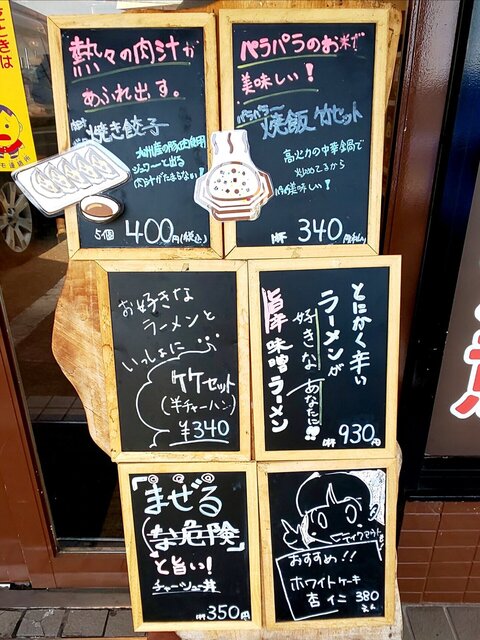 ときは
熱々の肉汁が
あふれ出す。
焼き餃子
九州産の豚肉使用
ジュワーと出る
肉汁がたまらない!
5個 400円(税込)
パラパラのお米で
美味しい!
パラパラ
焼飯 竹セット
高火力の中華鍋で
炒めてるから
美味しい!
340円(税込)
お好きな
ラーメンと
いっしょに
竹セット
(半チャーハン)
¥340
とにかく辛い
ラーメンが
好きな
あなたに!!
旨辛味噌ラーメン
930円
「まぜる
な危険」
と旨い!
チャーシュー丼
350円
おすすめ!!
ホワイトケーキ
杏仁 380
えん